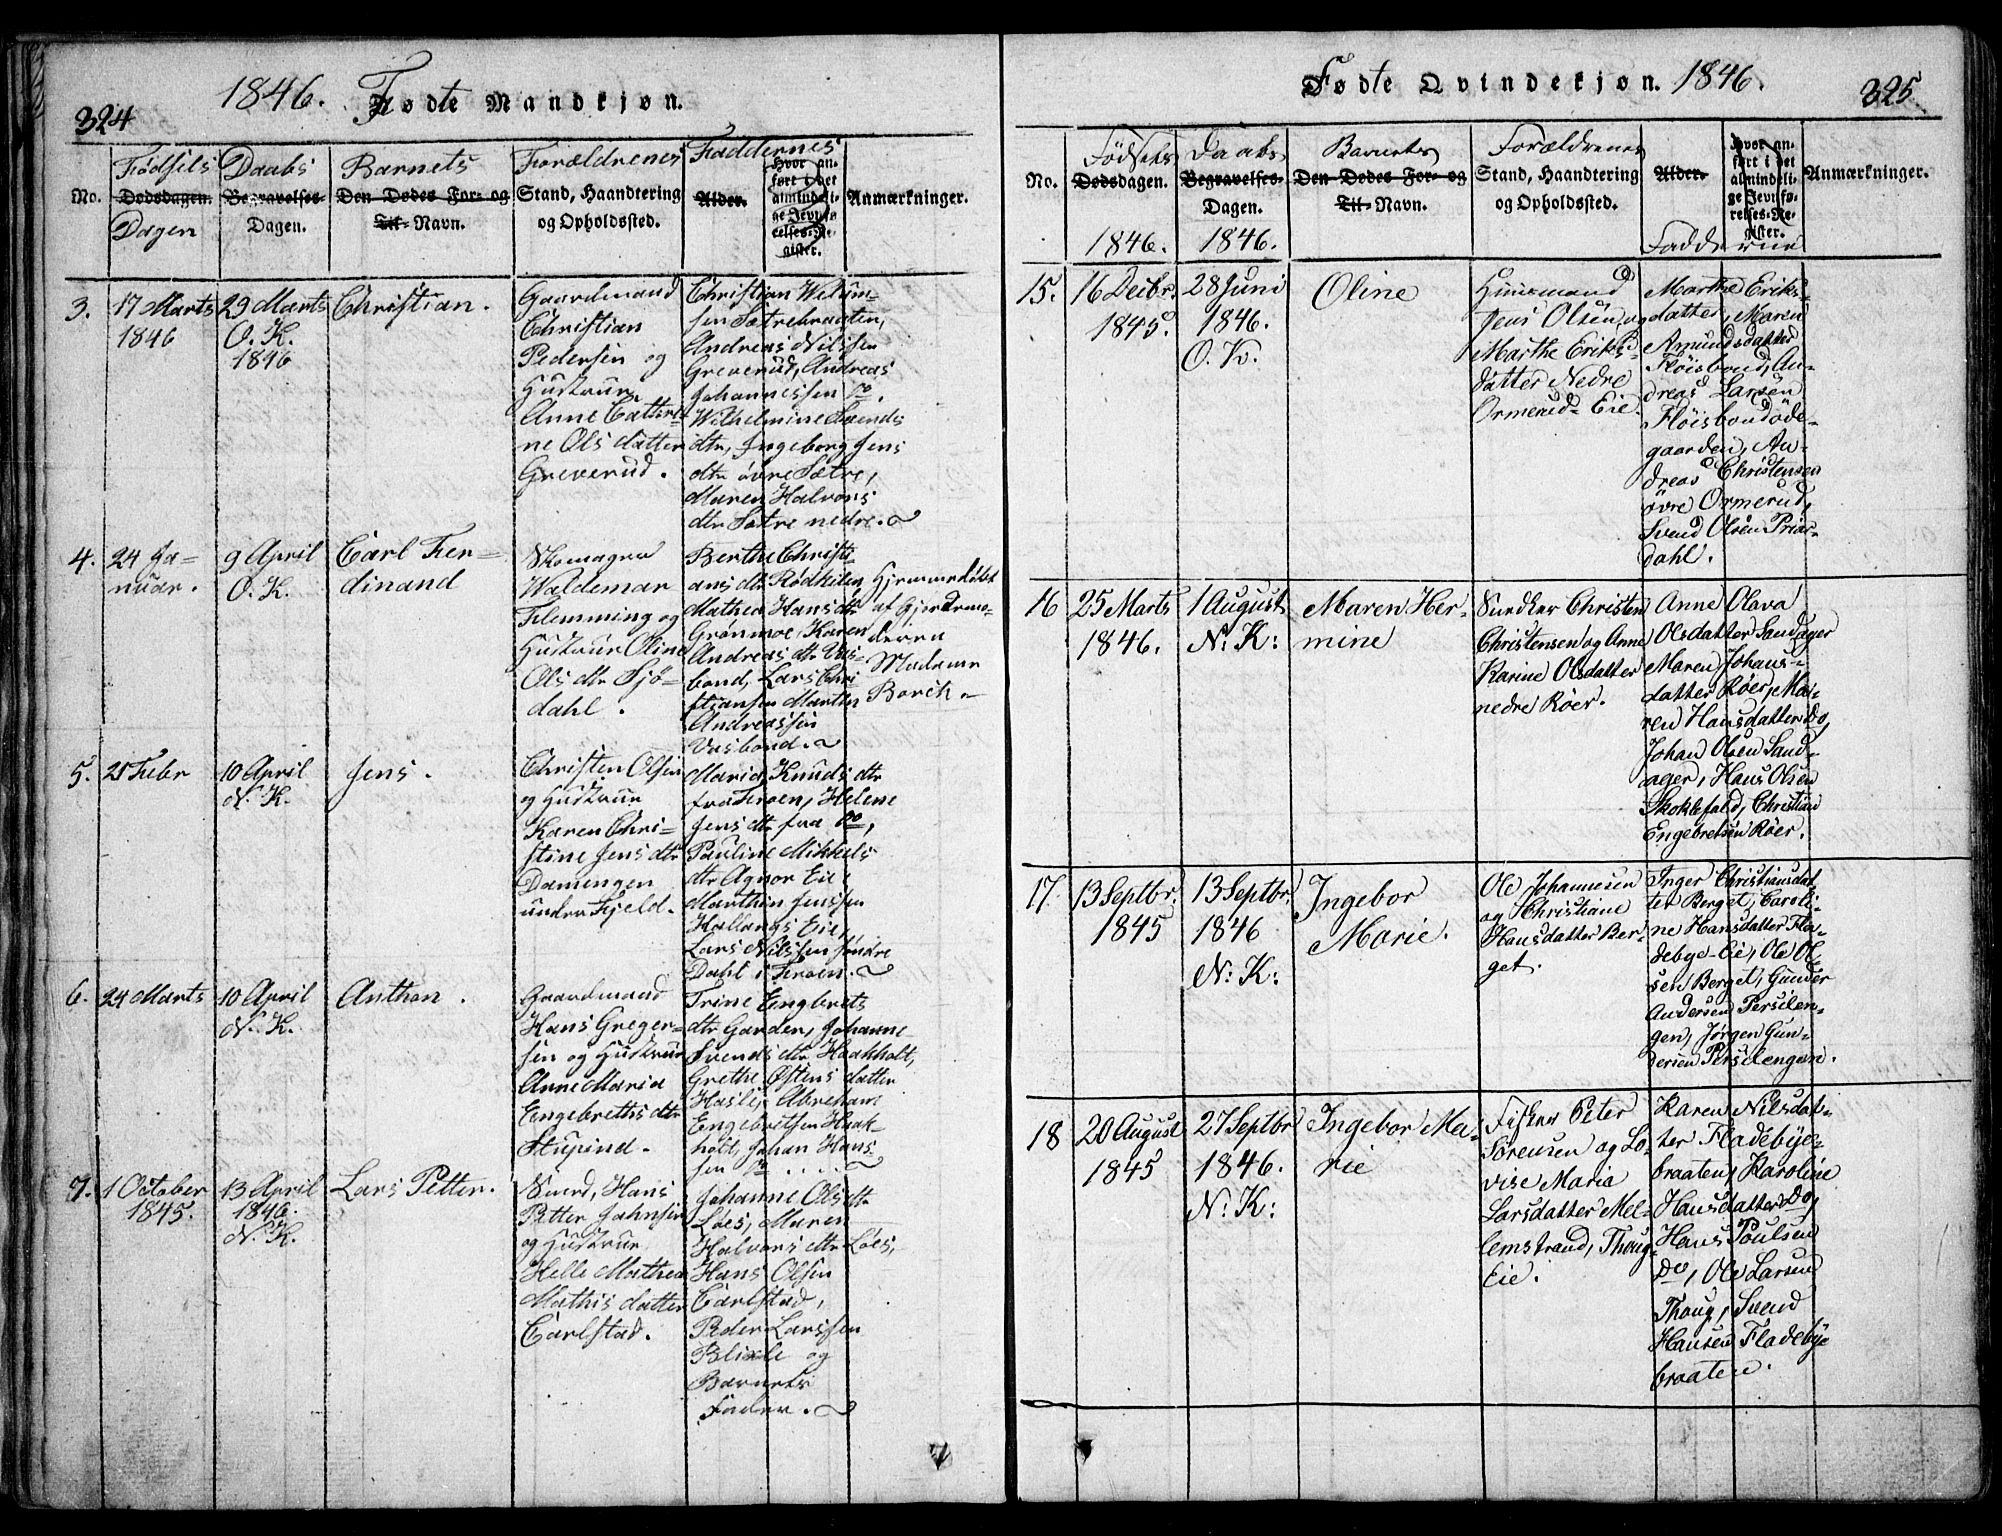 324
1846. Fødte Mandkjøn.
No.
Fødsels
Dødsdagen.
Dagen
Daabs
Begravelses-
Dagen.
Barnets
Den Dødes For- og
Til- Navn.
Forældrenes
Stand, Haandtering
og Opholdssted.
Faddernes
Alder.
Hvor an-
ført i det
almindeli-
ge Jevn-
førelses-Re-
gister.
Anmærkninger.
3.
17 Marts
1846
29 Marts
O. K.
1846
Christian.
Gaardmand
Christian
Pedersen og
Hustrue
Anne Cathri-
ne Ols datter
Greverud.
Christian Wilum-
sen Sætrebraaten,
Andreas Nilssen
Greverud, Andreas
Johannessen Do.
Wilhelmine Svends
dtr, Ingeborg Jens
dtr øvre Sætre,
Maren Halvors
dtr Sætre nedre.
4.
24 Ja-
nuar.
9 April
O. K.
Carl Fer-
dinand
Skomager
Waldemar
Flemming og
Hustrue Oline
Ols dtr Sjø-
dahl.
Berthe Christi-
ans dtr Rødkilen,
Mathea Hans dtr
Grønmoe, Karen
Andreas dtr Vas-
bond, Lars Chri-
stiansen Martin
Andreassen
Vasbond.
Hjemmedøbt
af Gjordemo-
deren
Madame
Borch.
5.
25 Febr
10 April
N. K.
Jens.
Christen Olsen
og Hustrue
Karen Chri-
stine Jens dtr
Damengen
under Fjeld.
Maria Knuds dtr
fra Froen, Helene
Jens dtr fra Do,
Pauline Mikkels
dtr Agnor Eie,
Marthin Jenssen
Hallangs Eie,
Lars Nilssen søndre
Dahl i Froen.
6.
24 Marts
10 April
N. K.
Anthon.
Gaardmand
Hans Greger-
sen og Hustrue
Anne Maria
Engebreths dtr
Stupind.
Trine Engbrets
dtr Garden, Johanne
Svends dtr Haakholt,
Grethe Østens datter
Hasle, Abraham
Engebretsen Haak-
holt, Johan Hans-
sen Do
7.
1 October
1845.
13 April
1846.
N. K.
Lars Petter.
Smed, Hans
Petter Jahnsen
og Hustrue
Helle Mathea
Mathis datter
Carlstad.
Johanne Ols dtr
Løes, Maren
Halvors dtr Løes,
Hans Olsen
Carlstad,
Peder Larssen
Blixle og
Barnets
Fader.
Fødte Qvindekjøn. 1846.
325
No.
Fødsels
Dødsdagen.
1846.
Daabs
Begravelses-
Dagen.
1846.
Barnets
Den Dødes For- og
Til- Navn.
Forældrenes
Stand, Haandtering
og Opholdssted.
Alder.
Hvor an-
ført i det
almindeli-
ge Jevnfø-
relses-Re-
gister.
Fadderne
Anmærkninger.
15.
16 Decbr.
1845.
28 Juni
1846.
O. K.
Oline
Huusmand
Jens Olsen og
Marthe Eriks-
datter Nedre
Ormerud-Eie.
Marthe Eriks-
datter, Maren
Amundsdatter
Fløisbond, An-
dreas Larsen
Fløisbondøde-
gaarden, An-
dreas Christensen
øvre Ormerud,
Svend Olsen Priis-
dahl.
16
25 Marts
1846.
1 August
N: K:
Maren Her-
mine
Snedker Christen
Christensen og Anne
Karine Olsdatter
nedre Røer.
Anne Olava
Olsdatter Sandager
Maren Johans-
datter Røer, Ma-
ren Hansdatter Do,
Johan Olsen Sand-
ager, Hans Olsen
Skoklefald, Christian
Engebretsen Røer.
17
13 Septbr.
1845
13 Septbr.
1846
N: K:
Ingebor
Marie.
Ole Johannesen
og Christiane
Hansdatter Ber-
get.
Inger Christiansdat-
ter Berget, Caroli-
ne Hansdatter Fla-
debye-Eie, Ole Ol-
sen Berget, Gunder
Andersen Persilen-
gen, Jørgen Gun-
dersen Persilengen.
18
20 August
1845
27 Septbr
1846.
N: K:
Ingebor Ma-
rie
Fisker Peter
Sørensen og Lo-
vise Maria
Larsdatter Mel-
lemstrand, Thoug-
Eie.
Karen Nilsdat-
ter Fladebye-
braaten, Karoline
Hansdatter Do,
Hans Poulsen
Do, Ole Larsen
Thoug, Svend
Hansen Fladebye-
braaten.